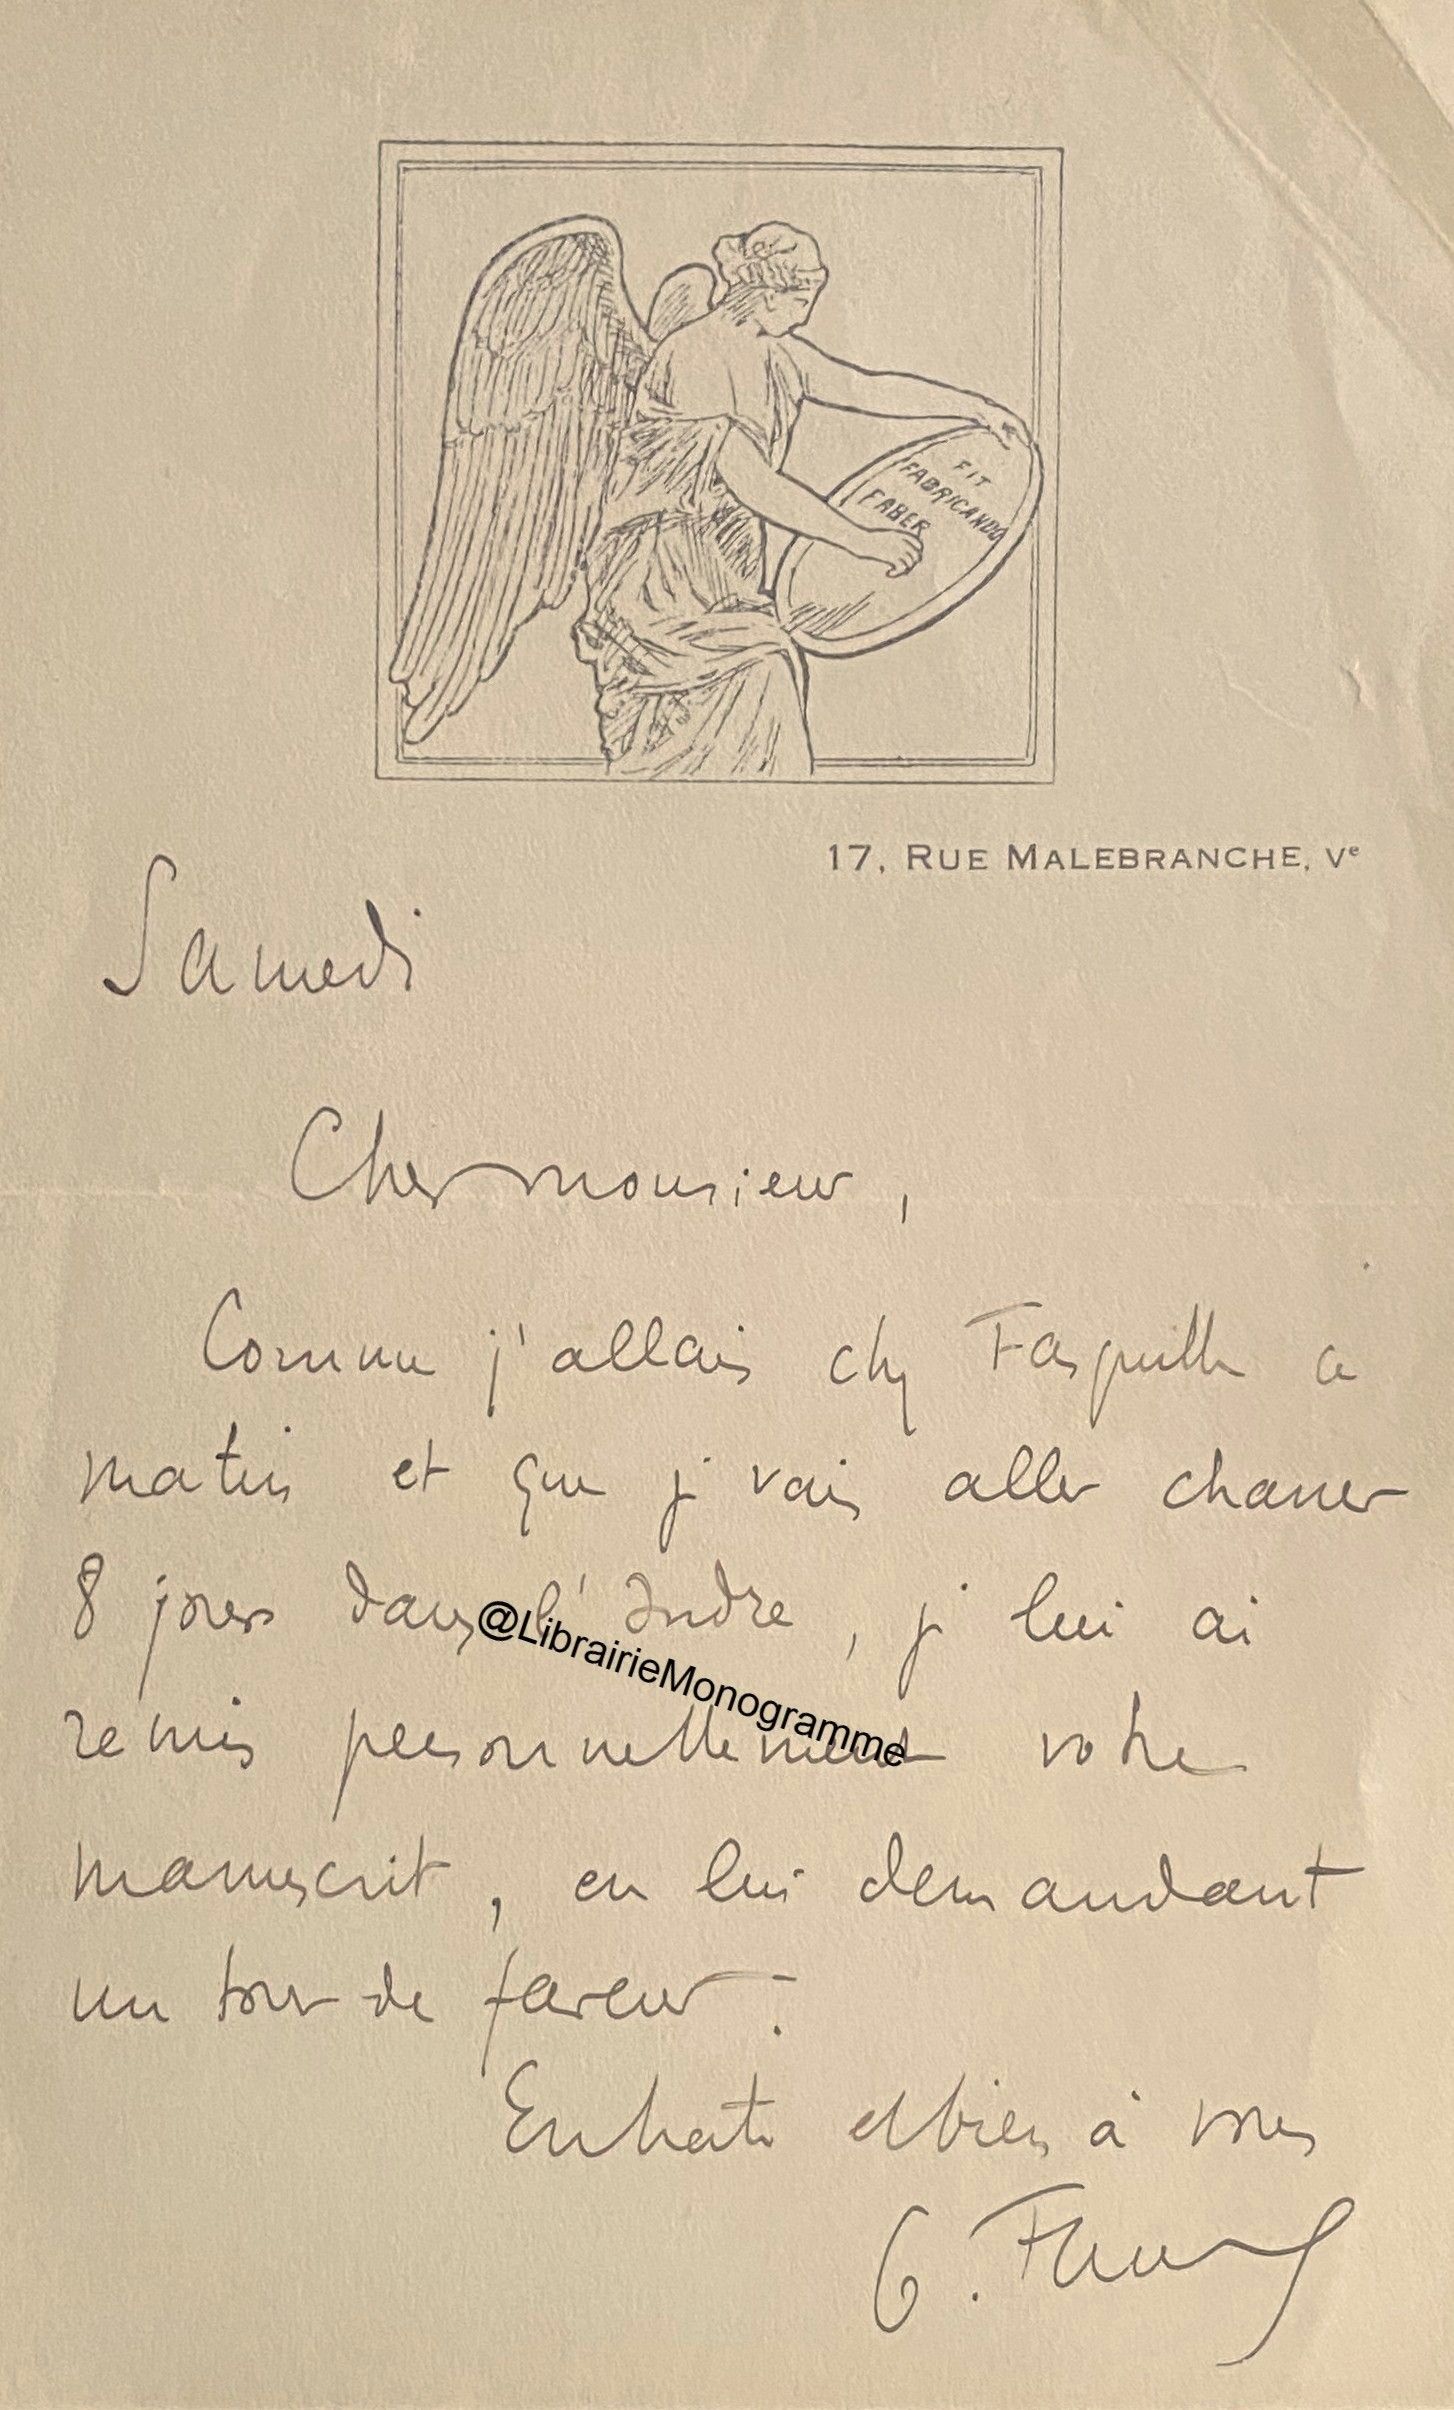 FIT
FABRICANDO
FABER
17, RUE MALEBRANCHE, Ve
Samedi
Cher monsieur,
Comme j'allais chez Fasquelle ce
matin et que je vais aller chasser
8 jours dans l'Indre, je lui ai
@LibrairieMonogramme
remis personnellement votre
manuscrit, en lui demandant
un tour de faveur.
En hâte et bien à vous